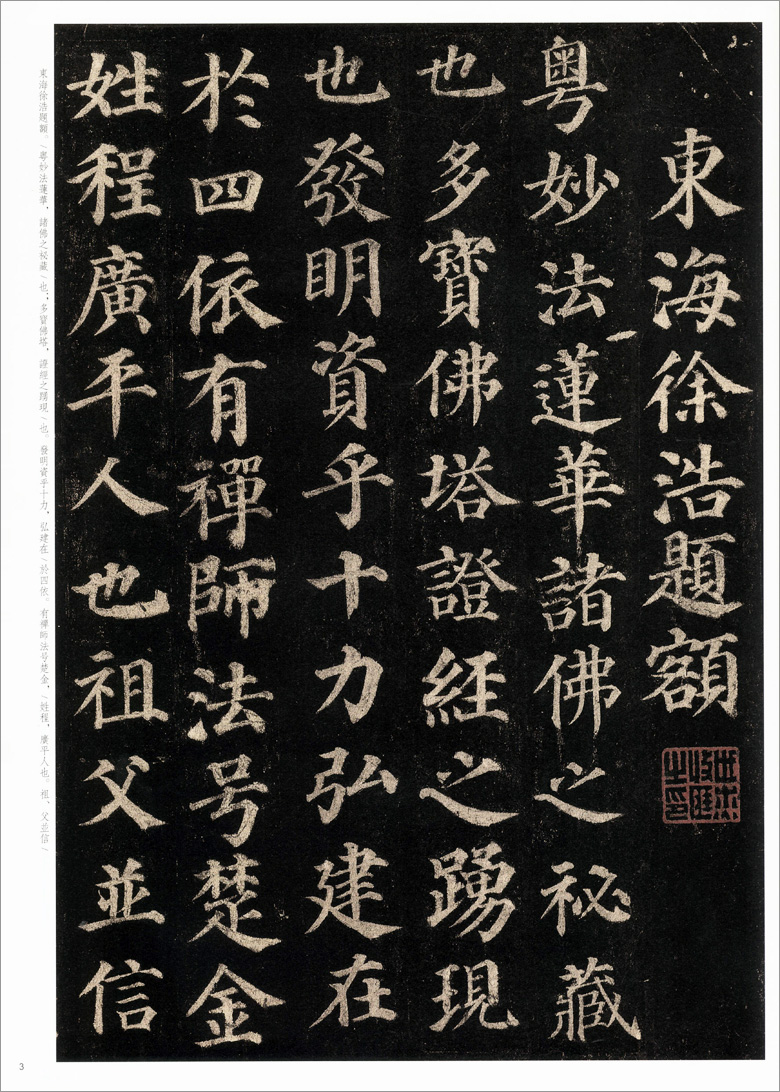 東海徐浩題額
粤妙法蓮華諸佛之秘藏
也多寶佛塔證經之踴現
也發明資乎十力弘建在
於四依有禪師法号楚金
姓程廣平人也祖父並信
東海徐浩題額。/粤妙法蓮華，諸佛之秘藏/也；多寶佛塔，證經之踴現/也。發明資乎十力，弘建在/於四依。有禪師法号楚金，/姓程，廣平人也。祖、父並信/
3